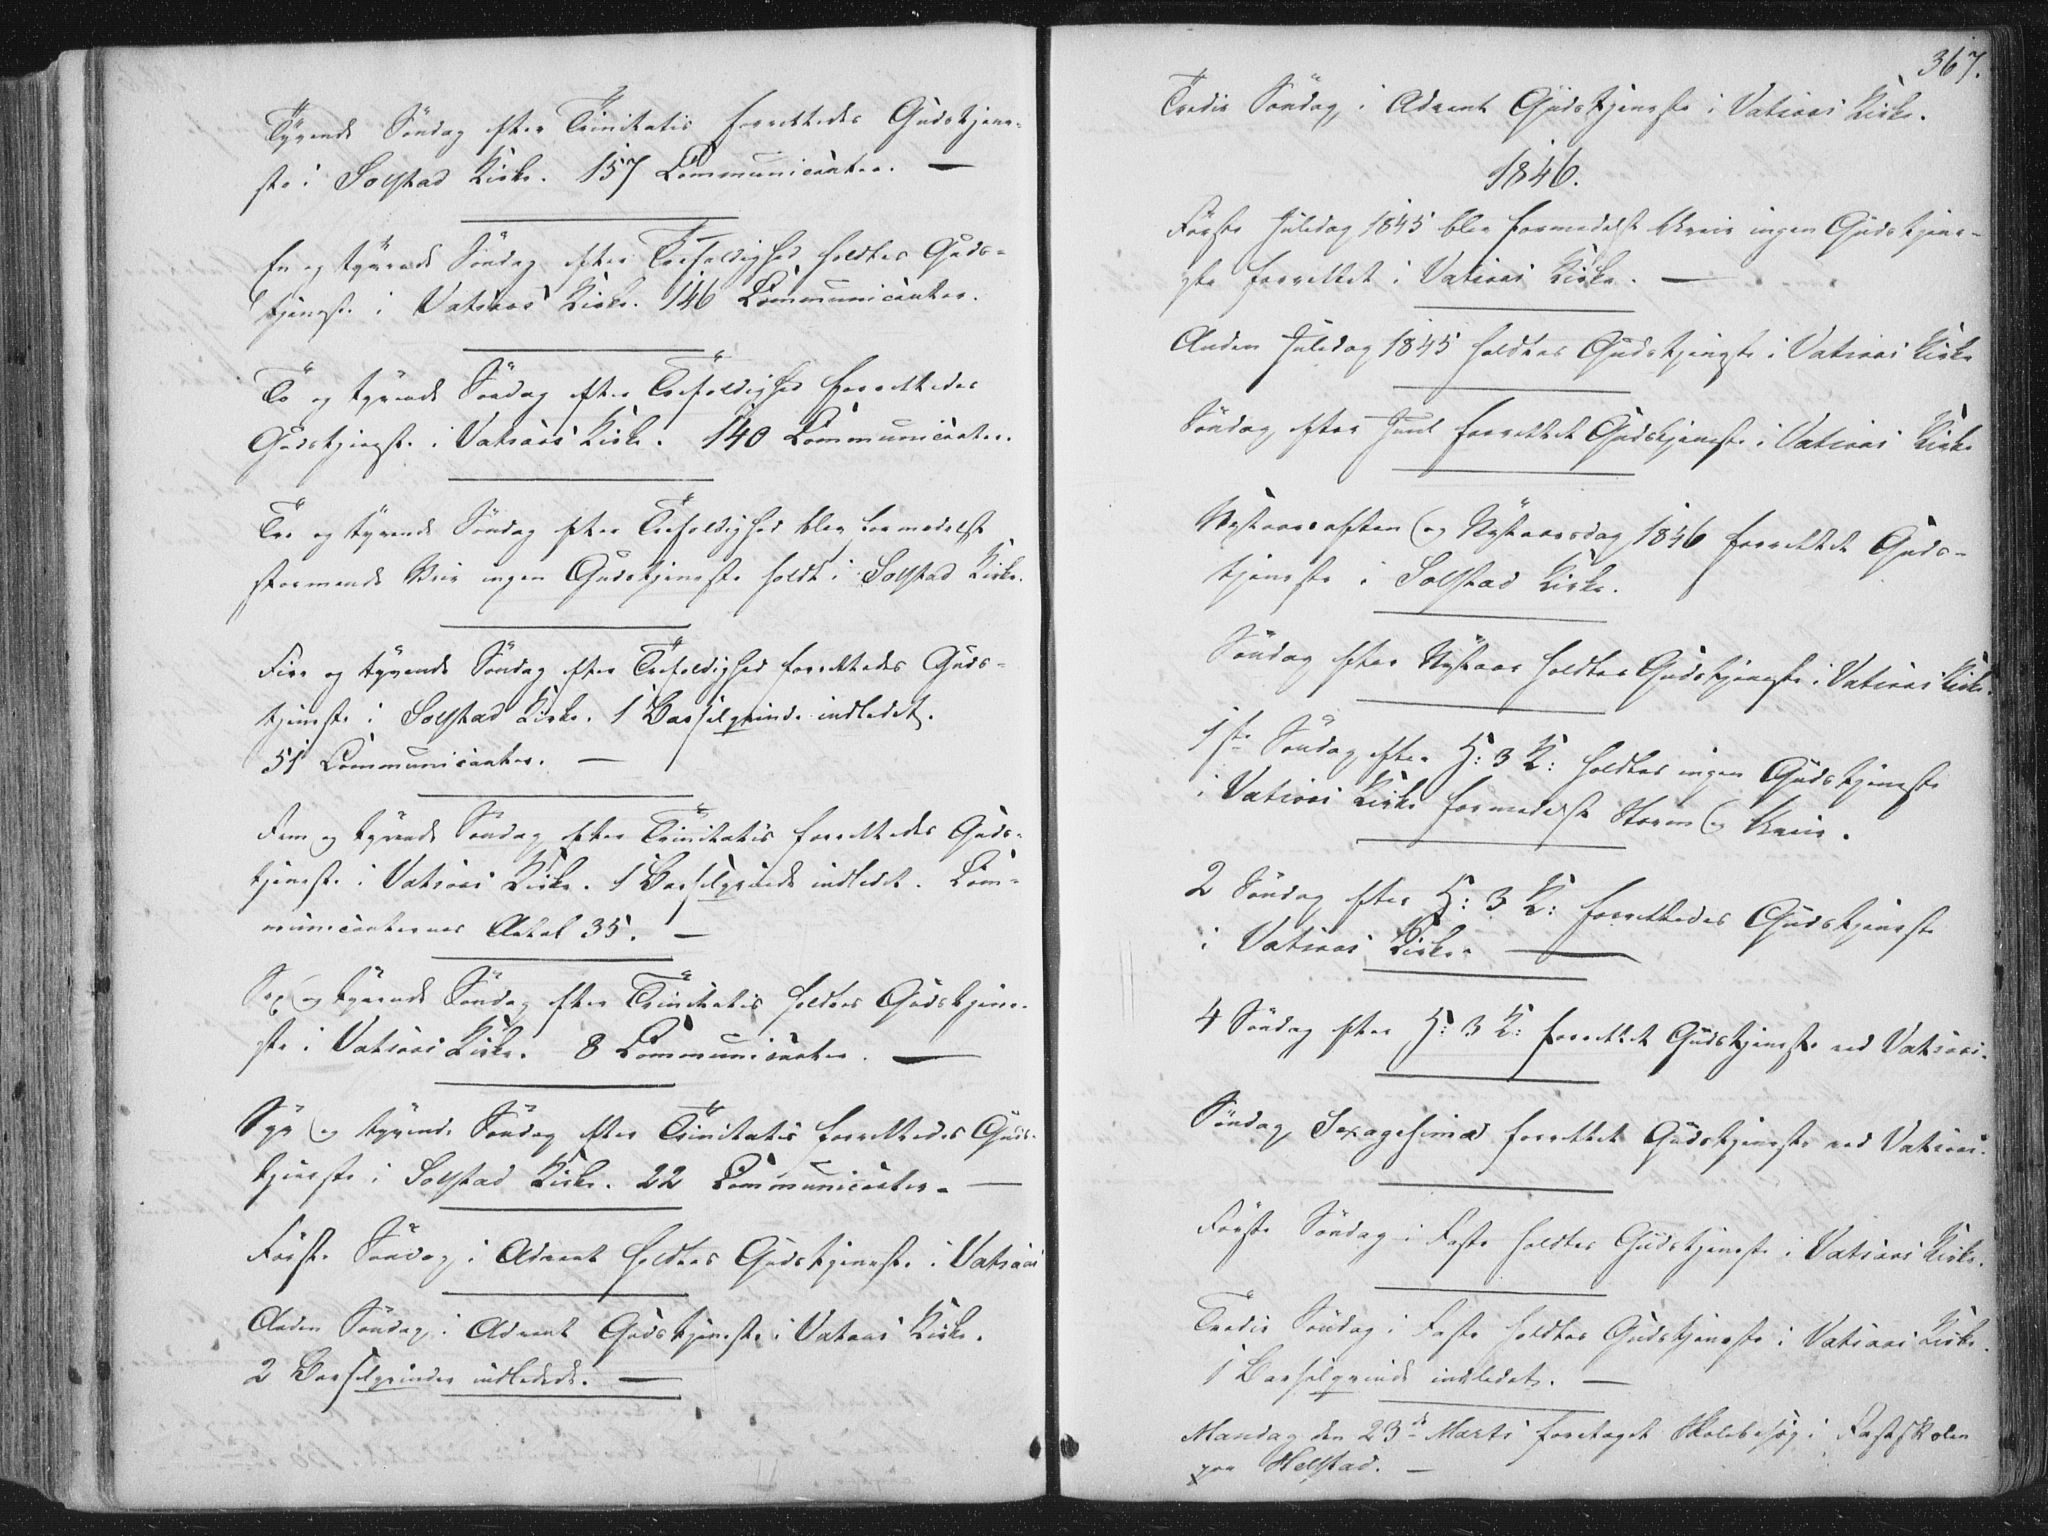 Tyvende Søndag efter Trinitatis forrettedes Gudstjene-
ste i Solstad Kirke. 157 Communicanter. —
En og tyvende Søndag efter Trefoldighed holdtes Guds-
tjeneste i Vatsaas Kirke. 146 Communicanter.
To og tyvende Søndag efter Trefoldighed forrettedes
Gudstjeneste i Vatsaas Kirke. 140 Communicanter.
Tre og tyvende Søndag efter Trefoldighed blev formedelst
stormende Veir ingen Gudstjeneste holdt i Solstad Kirke.
Fire og tyvende Søndag efter Trefoldighed forrettedes Guds-
tjeneste i Solstad Kirke. 1 Barselqvinde indledet.
51 Communicanter. —
Fem og tyvende Søndag efter Trinitatis forrettedes Guds-
tjeneste i Vatsaas Kirke. 1 Barselqvinde indledet. Com-
municanternes Antal 35. —
Sex og tyvende Søndag efter Trinitatis holdtes Gudstjene-
ste i Vatsaas Kirke. 8 Communicanter. —
Syv og tyvende Søndag efter Trinitatis forrettedes Guds-
tjeneste i Solstad Kirke. 22 Communicanter. —
Første Søndag i Advent holdtes Gudstjeneste i Vatsaas
Anden Søndag i Advent Gudstjeneste i Vatsaas Kirke.
2 Barselqvinder indledede. —
367.
Tredie Søndag i Advent Gudstjeneste i Vatsaas Kirke.
1846.
Første Juledag 1845 blev formedelst Uveir ingen Gudstjene-
ste forrettet i Vatsaas Kirke. —
Anden Juledag 1845 holdtes Gudstjeneste i Vatsaas Kirke
Søndag efter Juul forrettet Gudstjeneste i Vatsaas Kirke
Nytaarsaften og Nytaarsdag 1846 forrettet Guds-
tjeneste i Solstad Kirke.
Søndag efter Nytaar holdtes Gudstjeneste i Vatsaas Kirke.
1ste Søndag efter H: 3 K: holdtes ingen Gudstjeneste
i Vatsaas Kirke formedelst Storm og Uveir.
2 Søndag efter H: 3 K: forrettedes Gudstjeneste
i Vatsaas Kirke. —
4 Søndag efter H: 3 K: forrettet Gudstjeneste ved Vatsaas.
Søndag Sexagesima forrettet Gudstjeneste ved Vatsaas.
Første Søndag i Faste holdtes Gudstjeneste i Vatsaas Kirke.
Tredie Søndag i Faste holdtes Gudstjeneste i Vatsaas Kirke.
1 Barselqvinde indledet. —
Mandag den 23de Marts foretaget Skolebesøg i Fastskolen
paa Helstad. —